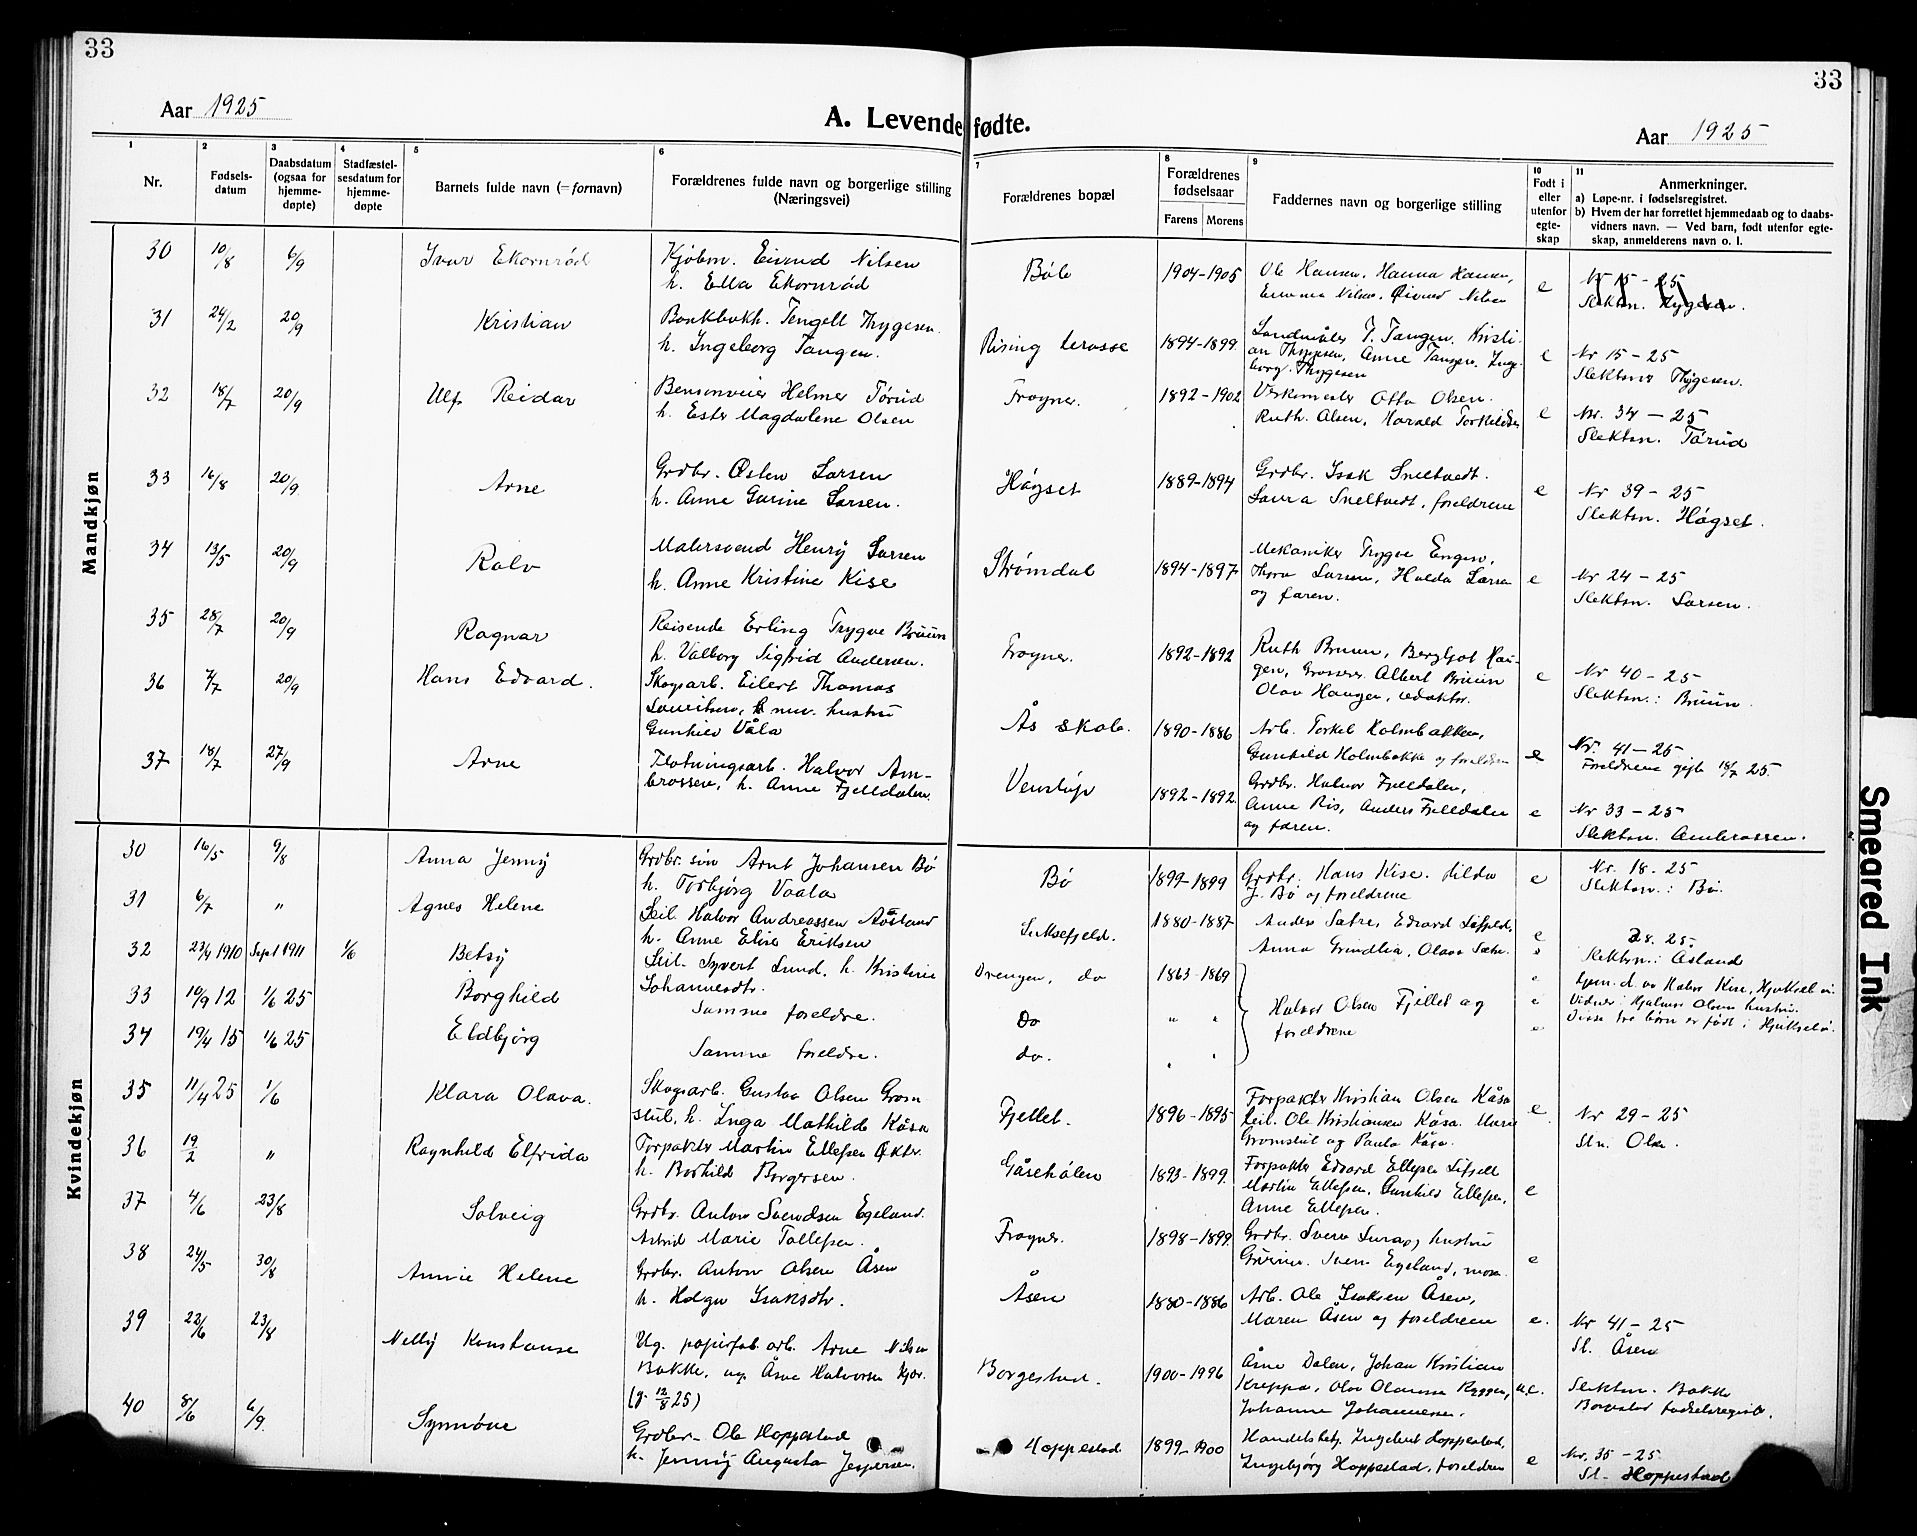 33
33
Aar 1925
A. Levendefødte.
Aar 1925
1
2
3
4
5
6
7
8
9
10
11
Nr.
Fødsels-
datum
Daabsdatum
(ogsaa for
hjemme-
døpte)
Stadfæstel-
sesdatum for
hjemme-
døpte
Barnets fulde navn (= fornavn)
Forældrenes fulde navn og borgerlige stilling
(Næringsvei)
Forældrenes bopæl
Forældrenes
fødselsaar
Farens Morens
Faddernes navn og borgerlige stilling
Født i
eller
utenfor
egte-
skap
Anmerkninger.
a) Løpe-nr. i fødselsregistret.
b) Hvem der har forrettet hjemmedaab og to daabs-
vidners navn. — Ved barn, født utenfor egte-
skap, anmelderens navn o. l.
Mandkjøn
30 10/8 6/9 Ivar Ekornrød
Kjøbm. Eivind Nilsen
h. Ella Ekornrød
Bøle 1904-1905
Ole Hansen, Hanna Hansen,
Emma Nilsen, Eivind Nilsen
e
Nr 15-25
Slektsn. Thygesen.
31 24/2 20/9 Kristian
Bankbokh. Tengell Thygesen.
h. Ingeborg Tangen.
Rising terasse 1894-1899
Landmåler T. Tangen, Kristi-
an Thygesen, Anne Tangen, Inge-
borg Thygesen
e
Nr 15-25
Slektsnv Thygesen.
32 18/7 20/9 Ulf Reidar
Helmer Tørud
h. Ester Magdalene Olsen
Frogner. 1892-1902
Verkmester Otto Olsen.
Ruth Olsen, Harald Torkildsen
e
Nr. 34-25
Slektsn. Tørud
33 16/8 20/9 Arne
Grdbr. Østen Larsen
h. Anne Gurine Larsen.
Høgset 1889-1894
Grdbr. Isak Sneltvedt.
Laura Sneltvedt, foreldrene
e
Nr 39-25
Slektsn. Høgset.
34 13/5 20/9 Ralv
Malersvend Henry Larsen
h. Anne Kristine Kise
Strømdal 1894-1897
Mekaniker Trygve Engen,
Thora Larsen, Hulda Larsen
og faren.
e
Nr 24-25
Slektsn. Larsen.
35 28/7 20/9 Ragnar
Reisende Erling Trygve Bruun
h. Valborg Sigfrid Andersen.
Frogner. 1892-1892
Ruth Bruun, Bergljot Hau-
gen, Grosserer Albert Bruun
Olav Haugen, redaktør.
e
Nr 40-25
Slektsn.: Bruun.
36 20/9 Hans Edvard.
Skogsarb. Eilert Thomas
hustru
Gunhild Våla
Ås skole. 1890-1886
Arb. Torkel Holmbakken,
Gunhild Holmbakke og foreldrene
e
Nr. 41-25
Foreldrene gift 18/7 25.
37 18/7 27/9 Arne
Fløtningsarb. Halvor Am-
brossen, h. Anne Fjelldalen.
Venstøp 1892-1892.
Grdbr. Halvor Fjelldalen,
Anne Ris, Anders Fjelldalen
og faren.
e
Nr 33-25
Slektsn. Ambrossen.
Kvindekjøn
30 16/5 9/8 Anna Jenny
Grdbr. søn Arnt Johansen Bø
h. Torbjørg Vaala
Bø 1899-1899
Grdbr. Hans Kise. Hilda
J. Bø og foreldrene
e
Nr. 18. 25
Slektsn.: Bø.
31 6/7 " Agnes Helene
Leil. Halvor Andreassen Aasland
h. Anne Elise Eriksen
Luksefjeld. 1880-1887
Anders Sætre, Edvard Lifjeld,
Anna Grindlia, Olava Sætre.
e
28. 25.
Slektsn.: Åsland
32 23/4 1910 Sept 1911 1/6 Betsy
Leil. Syvert Lund, h. Kristine
Johannesdtr.
Drengen, do 1863-1869
Halvor Olsen Fjellet og
foreldrene
e
Hjem. d. av Halvor Kise,
Vidner: Hjalmar Olsen hustru.
Disse tre børn er født i
33 19/9 12 1/6 25 Borghild
Samme foreldre.
Do " "
e
34 19/4 15 1/6 25 Eldbjørg
Samme foreldre.
do. " "
e
35 11/4 25 1/6 Klara Olava.
Skogsarb. Gustav Olsen Grom
stul, h. Inga Mathilde Kåsa
Fjellet. 1896-1895
Forpakter Kristian Olsen Kåsa
Leil. Ole Kristiansen Kåsa. Marie
Gromstul og Paula Kåsa.
e
Nr 29-25
Sln. Olsen.
36 19/2 " Ragnhild Elfrida
Forpakter Martin Ellefsen Økter.
h. Borhild Borgersen.
Gåsehølen 1893-1899.
Forpakter Edvard Ellefsen Lifjell
Martin Ellefsen, Gunhild Ellefsen,
Anne Ellefsen.
e
37 4/6 23/8 Solveig
Grdbr. Anton Svendsen Egeland.
Astrid Marie Tollefsen.
Frogner. 1898-1899.
Grdbr. Svein hustru
Svein Egeland, moren
e
38 24/5 30/8 Annie Helene
Grdbr. Anton Olsen Åsen
h. Helga Isaksdtr.
Åsen 1880-1886
Arb. Ole Isaksen Åsen,
Maren Åsen og foreldrene
e.
Nr 41-25
Sl. Åsen
39 22/6 23/8 Nelly Konstanse
Ug. papirfab. arb. Arne Nilsen
Bakke, ug. Åse Halvorsen Kjør.
(g 12/8 25)
Borgestad. 1900-1996
Arne Dalen, Johan Kristian
Kreppa, Olav Olausen Ryggen,
Johanne Johannesen.
u.e.
Slektsn. Bakke
Borgestad fødselsregister.
40 8/6 6/9. Synnøve
Grdbr. Ole Hoppestad
h. Jenny Augusta Jespersen.
Hoppestad 1899-1900
Handelsbetj. Ingebret Hoppestad,
Ingebjørg Hoppestad, foreldrene
e
Nr. 35-25
Sl. Hoppestad
Smeared Ink